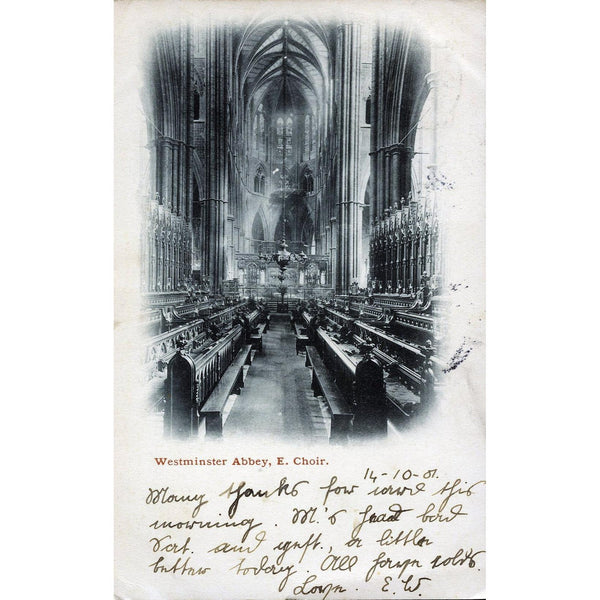 Westminster Abbey, E. Choir.
14-10-01
Many thanks for card this
morning. M.'s had bad
Sat. and yest., a little
better today. All
Love. E.W.